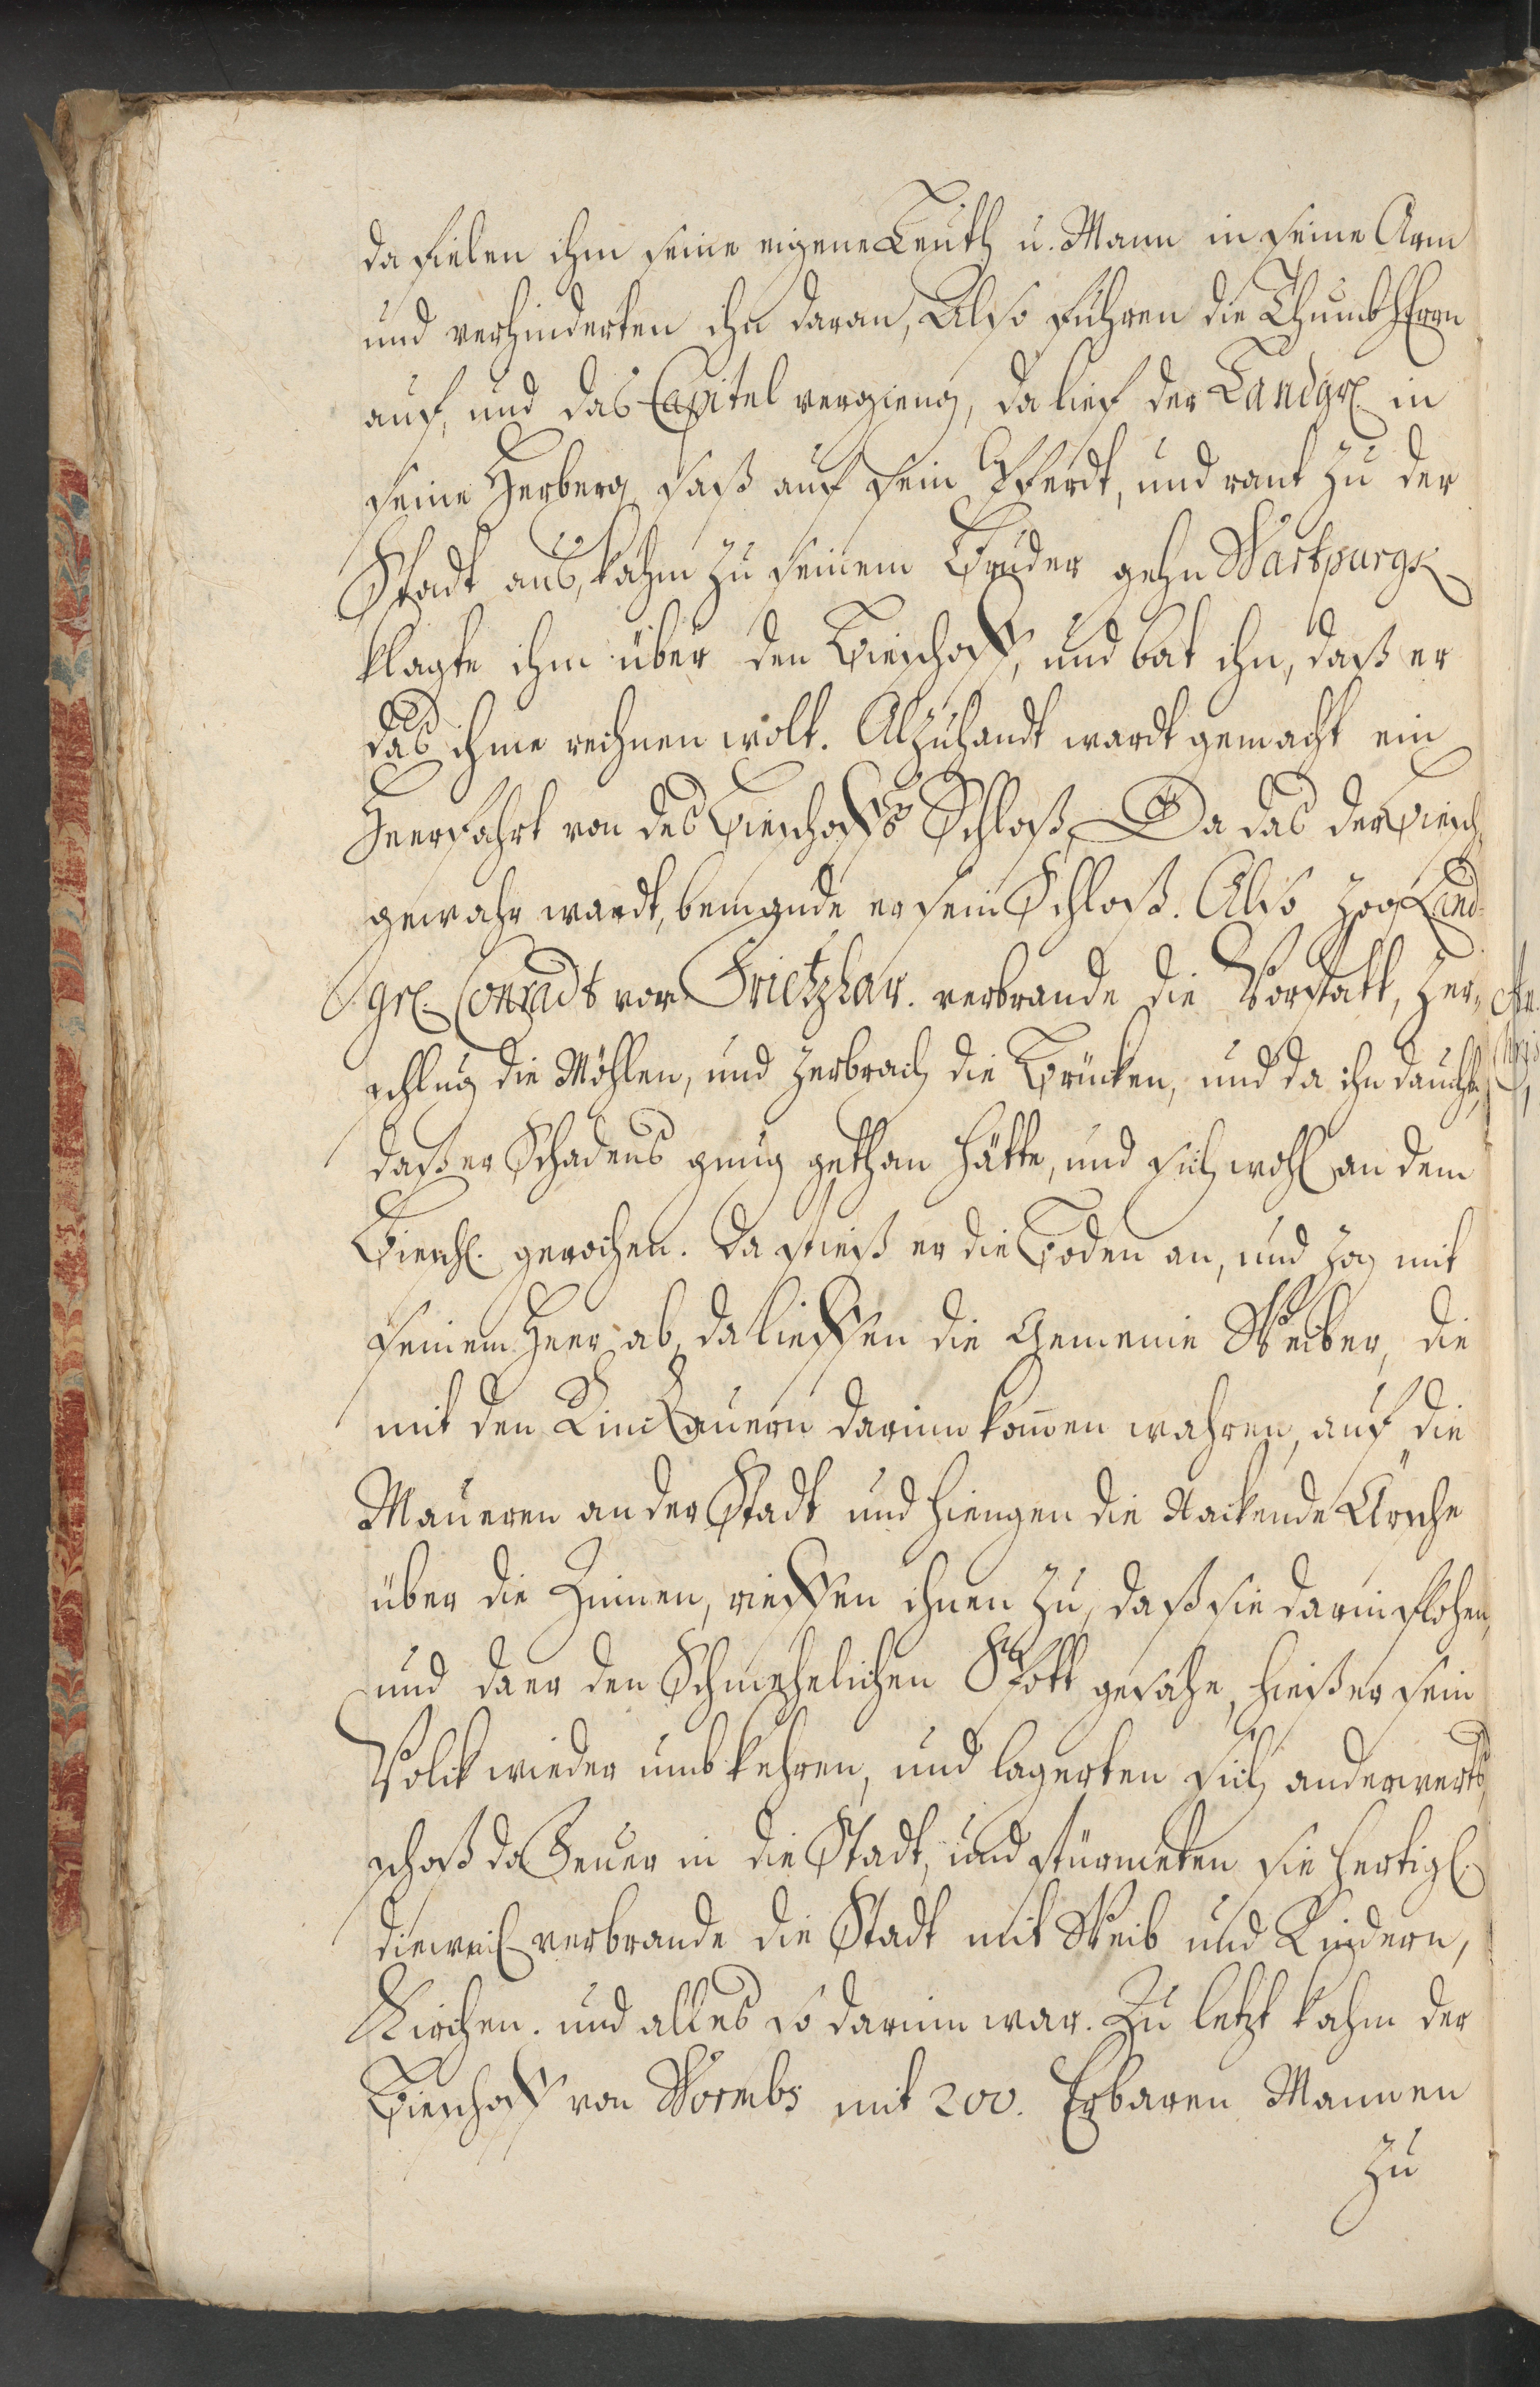 da fielen ihm seine eigene Leuth u. Mann in seine Arm
und verhinderten ihn daran, Also fuhren die ThumbHerrn
auf, und das Capitel vergieng, da lief der Landgr. in
seine Herberg saß auf sein Pferdt, und rant zu der
Stadt aus, kahm zu seinem Bruder gehn Wartpurgk
klagte ihm über den Bieschoff, und bat ihn, daß er
das ihme rechnen wolt. Alzuhandt wardt gemacht ein
Heerfahrt von des Bieschoffs Schloß, Da das der Biesch.
gewahr wardt, bemande er sein Schloß. Also zog Land-
gr. Conradt vor Frietzlar. verbrande die Vorstatt, zer-
schlug die Möhlen, und zerbrach die Brücken, und da ihn dauchte,
daß er Schadens gnug gethan hätte, und sich wohl an dem
Biesch. gerochen. Da stieß er die Boden an, und zog mit
seinem Heer ab, da lieffen die Gemeine Weiber, die
mit den darinn kommen wahren, auf die
Maueren an der Stadt und hiengen die Nackende Ärsche
über die Zinnen, rieffen ihnen zu, daß sie darin flohen,
und da er den Schmehelichen Spott gesahe, hieß er sein
Volck wieder umbkehren, und lagerten sich anderwerts,
schoß da Feuer in die Stadt, und stürmeten sie hertigl.
dieweil verbrande die Stadt mit Weib und Kindern,
Kirchen. und alles so darinn war. Zu letzt kahm der
Bieschoff von Wormbs mit 200. Erbaren Mannen
zu